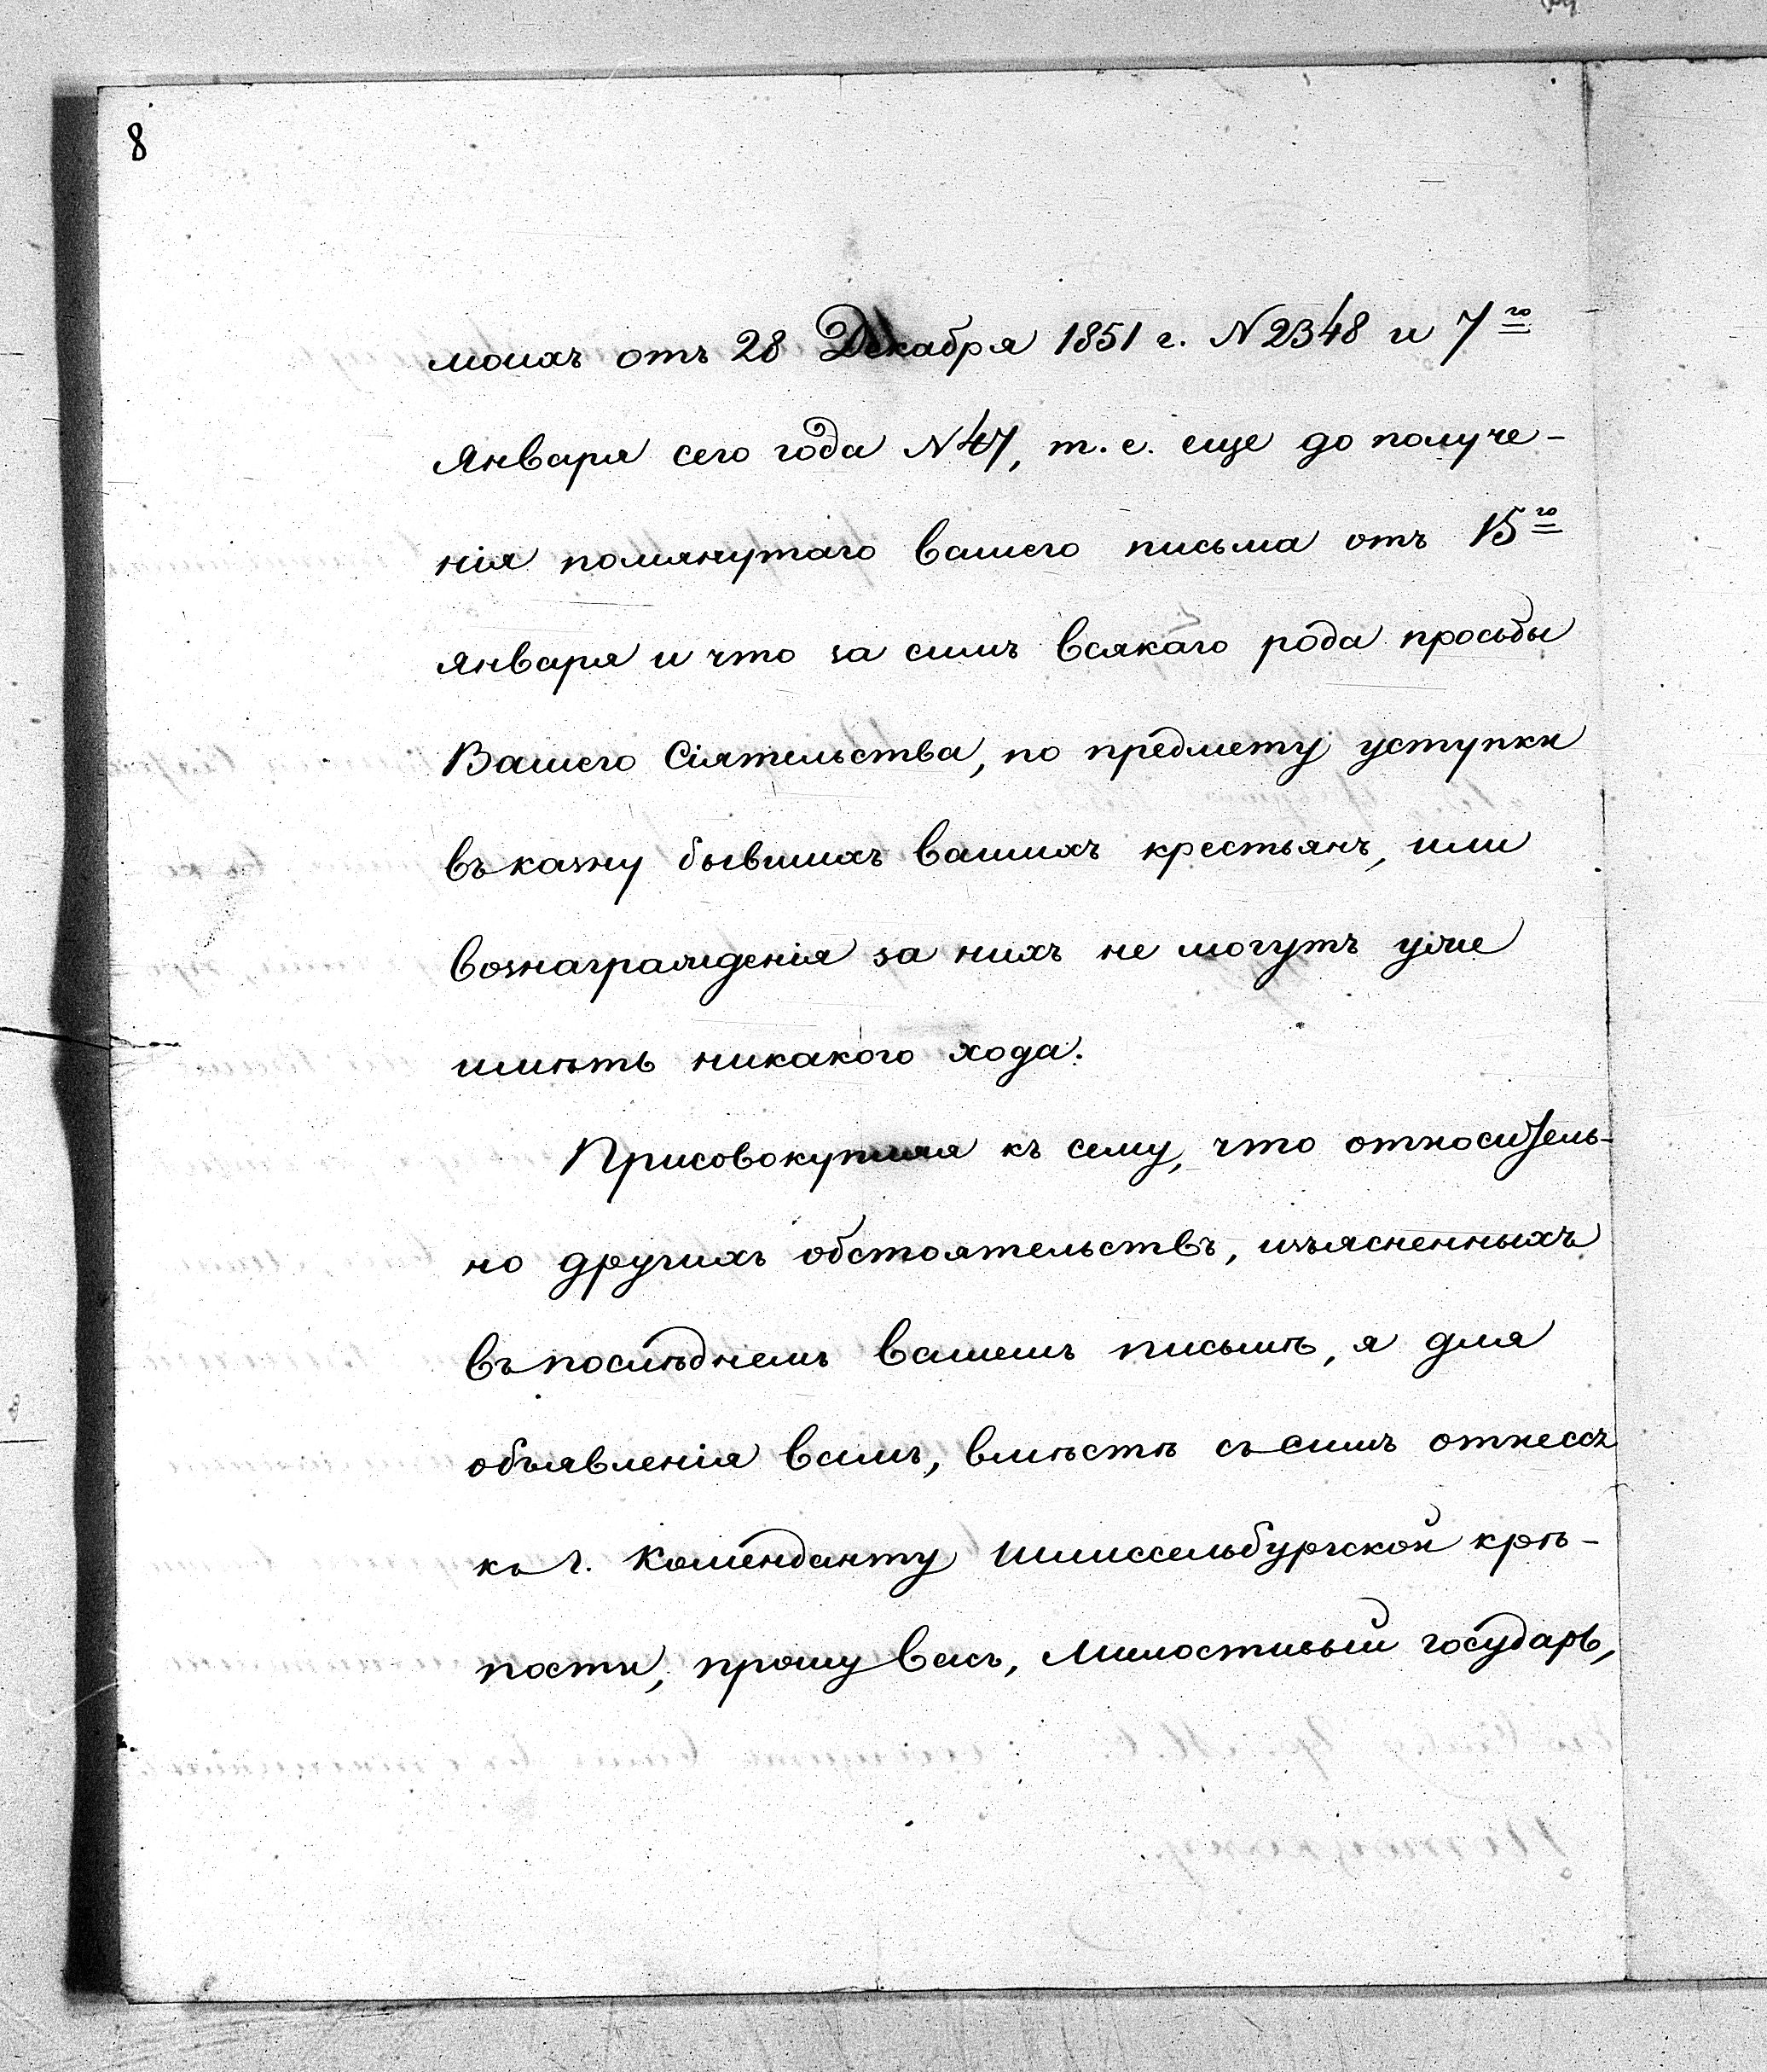 8
моихъ отъ 28 Декабря 1851 г. N 2348 и 7го
Января сего года N 47, т. е. еще до получе-
нія помянутаго вашего письма отъ 15го
Января и что за симъ всякаго рода просьбы
Вашего Сіятельства, по предмету уступки
въ казну бывшихъ вашихъ крестьянъ, или
вознагражденія за нихъ не могутъ уже
имѣть никакого хода.
Присовокупляя къ сему, что относитель-
но другихъ обстоятельствъ, изъясненныхъ
въ послѣднемъ вашемъ письмѣ, я для
объявленія вамъ, вмѣстѣ съ симъ отнесся
къ г. Коменданту Шлиссельбургской крѣ-
пости, прошу васъ, Милостивый государь,